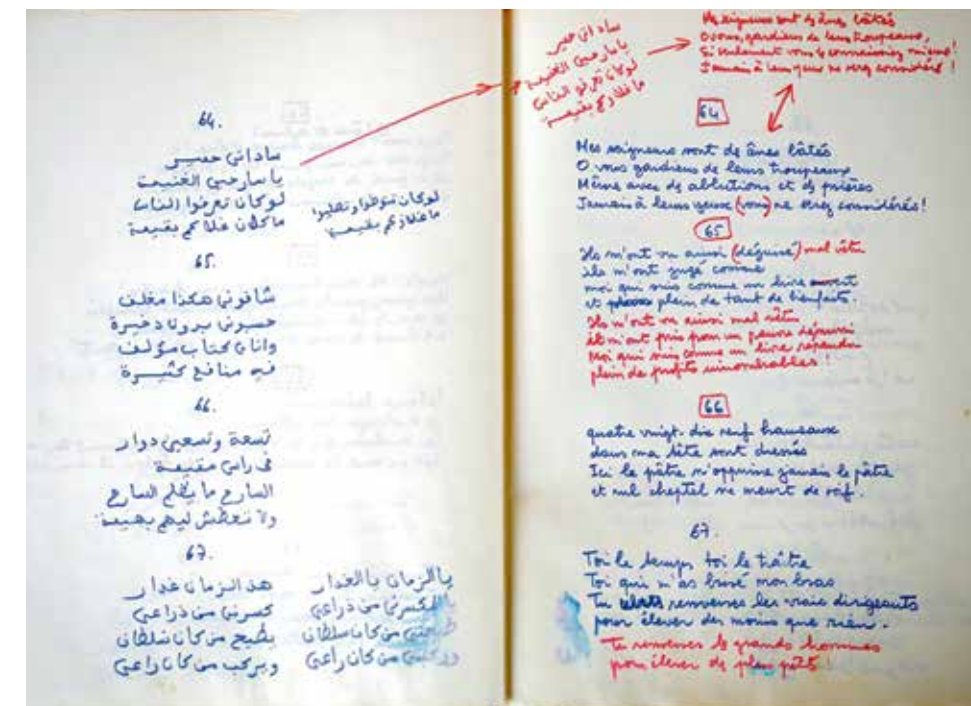 64.
ساداتي حمير
يا سارحين الغنيمة
لوكان تعرفوا الناس
بقيمة
لوكان
بقيمة
65.
شافوني هكذا مغلف
وانا كتاب مؤلف
فيه منافع كثيرة
66.
تسعة وتسعين دوار
في راسي مقيمة
السارح ما يظلم السارح
ولا تعطش ليهم بهيمة
67.
هذ الزمان غدار
كسرني من ذراعي
يطيح من كان سلطان
ويركب من كان راعي
يا الزمان يا الغدار
يا الكسرني من ذراعي
من كان سلطان
من كان راعي
ساداتي حمير
يا سارحين الغنيمة
لوكان تعرفو الناس
بقيمة
Mes seigneurs sont des ânes bâtés
O vous, gardiens de leurs troupeaux,
Si seulement vous les connaissiez mieux!
Jamais à leurs yeux ne serez considérés!
64
Mes seigneurs sont des ânes bâtés
O vous gardiens de leurs troupeaux
Même avec des ablutions et des prières
Jamais à leurs yeux (vous) ne serez considérés!
65
Ils m'ont vu ainsi (déguisé) mal vêtu
ils m'ont jugé comme
moi qui suis comme un livre ouvert
et plein de tant de bienfaits.
Ils m'ont vu ainsi mal vêtu
et m'ont pris pour un pauvre démuni
Moi qui suis comme un livre
plein de profits innombrables!
66
quatre vingt-dix neuf hameaux
dans ma tête sont dressés
Ici le pâtre n'opprime jamais le pâtre
et nul cheptel ne meurt de soif.
67.
Toi le temps toi le traître
Toi qui m'as brisé mon bras
Tu renverses les vrais dirigeants
pour élever des moins que rien.
Tu renverses les grands hommes
pour élever des plus petits!